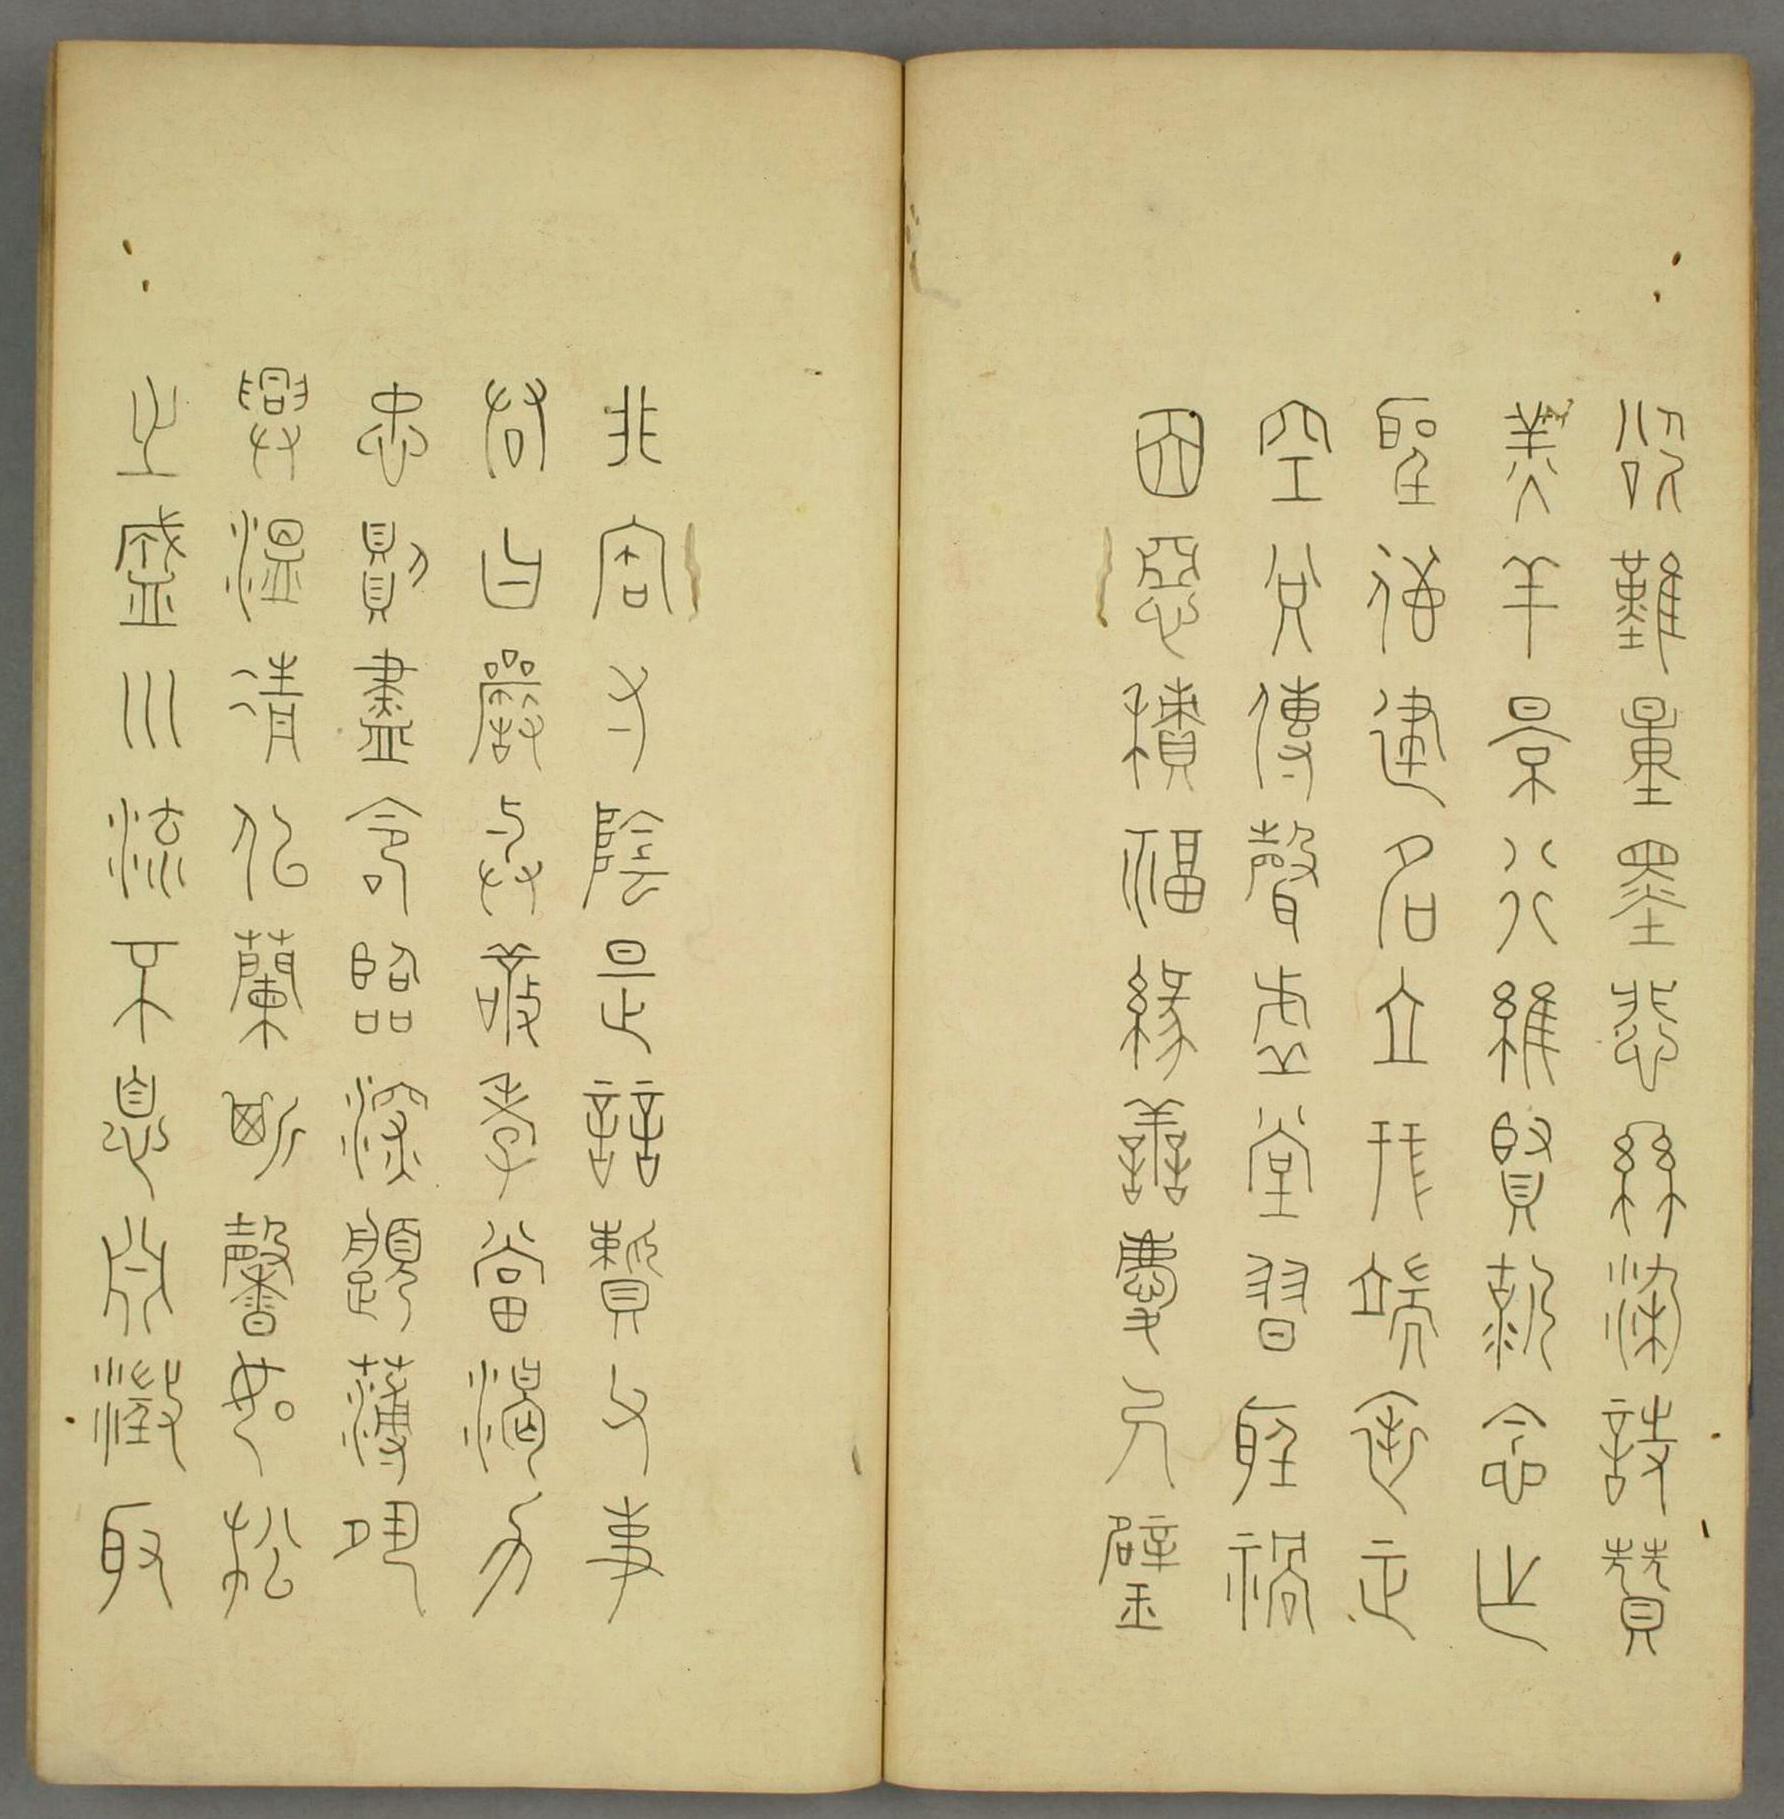 欲難量墨悲絲染詩贊
羔羊景行維賢克念作
聖德建名立形端表正
空谷傳聲虛堂習聽禍
因惡積福緣善慶尺璧
非寶寸陰是競資父事
君曰嚴與敬孝當竭力
忠則盡命臨深履薄夙
興溫清似蘭斯馨如松
之盛川流不息淵澄取